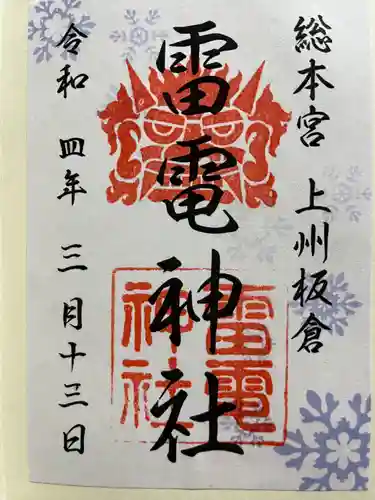 総本宮 上州板倉
雷電神社
雷電神社
令和 四年 三月十三日